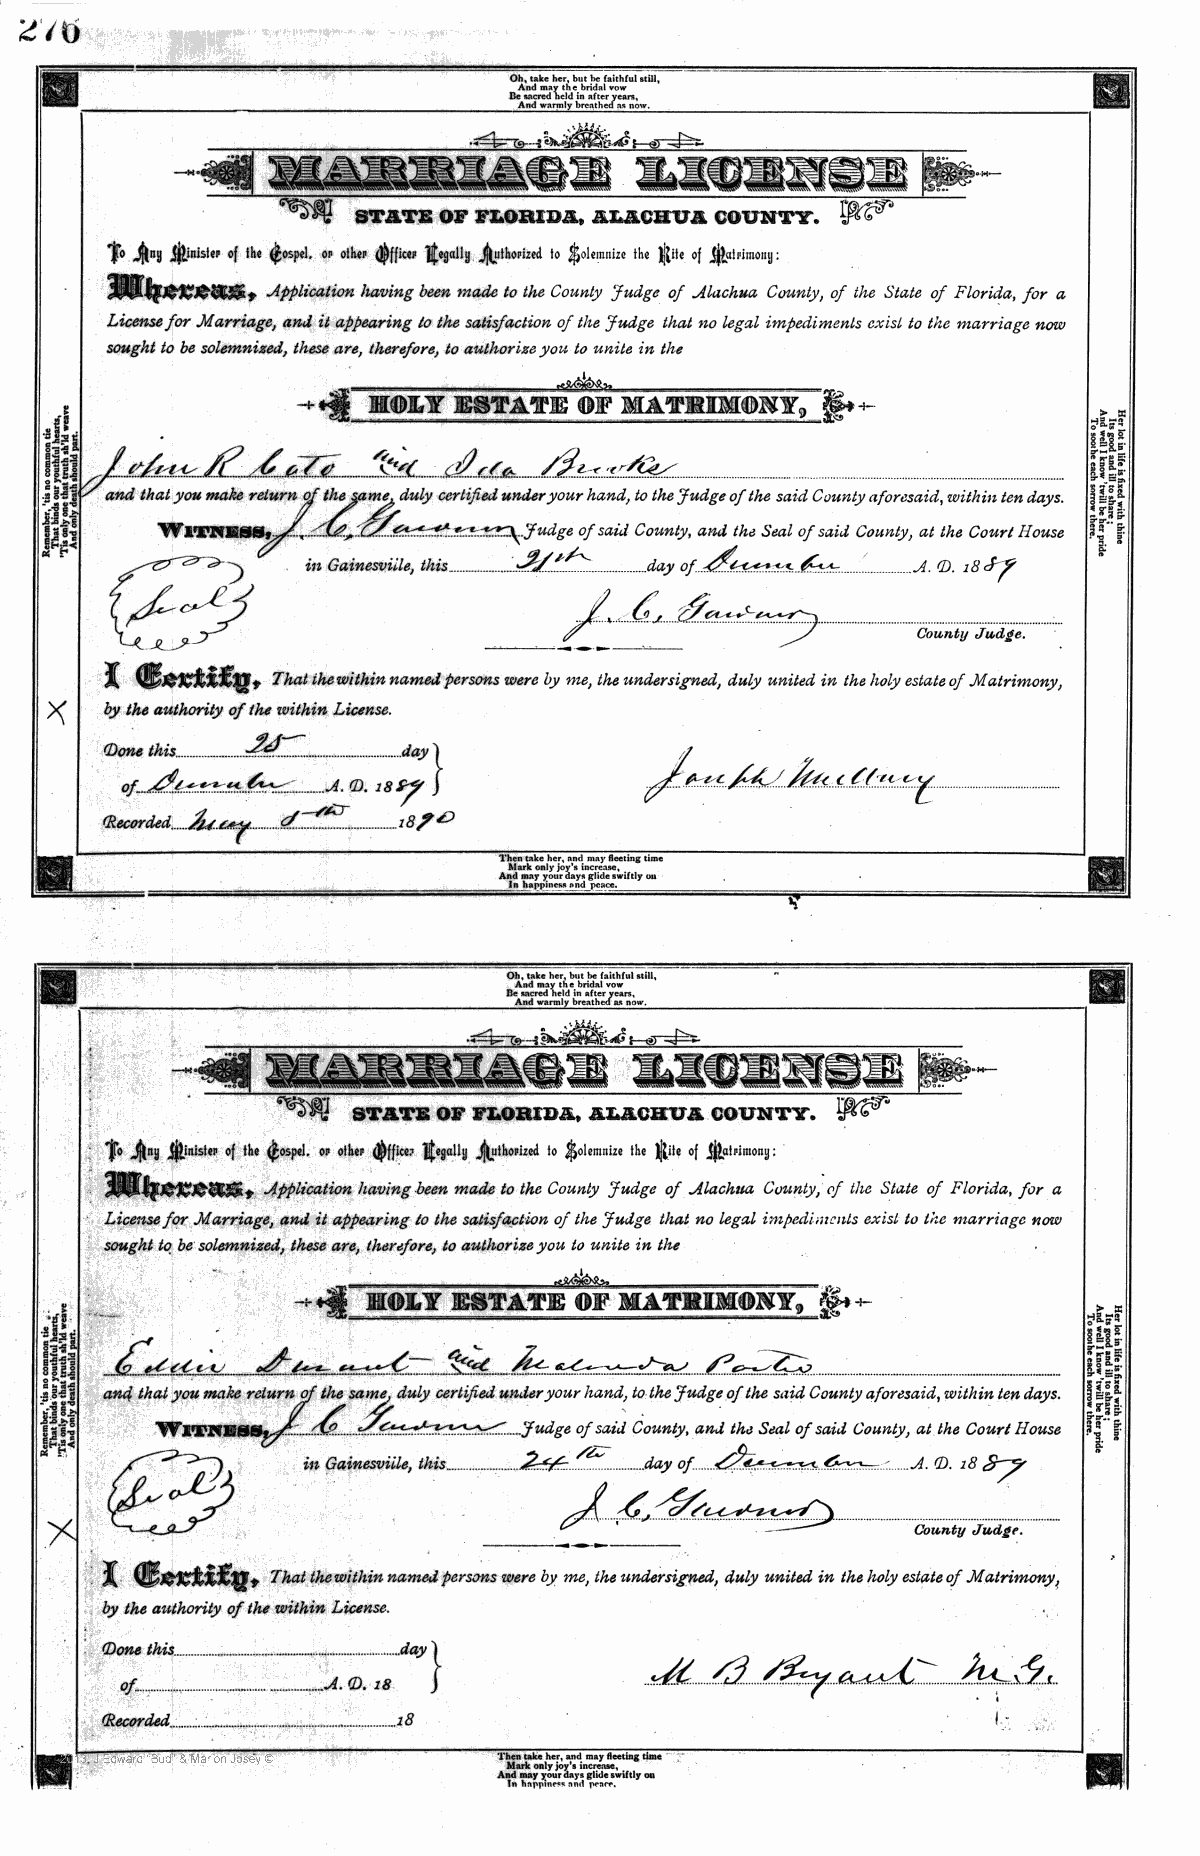 276
Oh, take her, but be faithful still,
And may the bridal vow
Be sacred held in after years,
And warmly breathed as now.
MARRIAGE LICENSE
STATE OF FLORIDA, ALACHUA COUNTY.
To Any Minister of the Gospel, or other Officer Legally Authorized to Solemnize the Rite of Matrimony:
Whereas, Application having been made to the County Judge of Alachua County, of the State of Florida, for a
License for Marriage, and it appearing to the satisfaction of the Judge that no legal impediments exist to the marriage now
sought to be solemnized, these are, therefore, to authorize you to unite in the
HOLY ESTATE OF MATRIMONY,
John R Cato and Ida Brooks
and that you make return of the same, duly certified under your hand, to the Judge of the said County aforesaid, within ten days.
WITNESS, J. C. Judge of said County, and the Seal of said County, at the Court House
in Gainesville, this day of December A. D. 1889
Seal
J. C.
County Judge.
I Certify, That the within named persons were by me, the undersigned, duly united in the holy estate of Matrimony,
by the authority of the within License.
Done this 25 day
of December A. D. 1889
Joseph
Recorded May 8th 1890
Remember, 'tis no common tie
That binds our youthful hearts,
'Tis only one that truth sh'ld weave
And only death should part.
Her lot in life is fixed with thine
Its good and ill to share;
And well I know 'twill be her pride
To soothe each sorrow there.
Then take her, and may fleeting time
Mark only joy's increase,
And may your days glide swiftly on
In happiness and peace.
Oh, take her, but be faithful still,
And may the bridal vow
Be sacred held in after years,
And warmly breathed as now.
MARRIAGE LICENSE
STATE OF FLORIDA, ALACHUA COUNTY.
To Any Minister of the Gospel, or other Officer Legally Authorized to Solemnize the Rite of Matrimony:
Whereas, Application having been made to the County Judge of Alachua County, of the State of Florida, for a
License for Marriage, and it appearing to the satisfaction of the Judge that no legal impediments exist to the marriage now
sought to be solemnized, these are, therefore, to authorize you to unite in the
HOLY ESTATE OF MATRIMONY,
Eddie Durant and Malinda Porter
and that you make return of the same, duly certified under your hand, to the Judge of the said County aforesaid, within ten days.
WITNESS, J C Judge of said County, and the Seal of said County, at the Court House
in Gainesville, this 24th day of December A. D. 1889
Seal
J. C.
County Judge.
I Certify, That the within named persons were by me, the undersigned, duly united in the holy estate of Matrimony,
by the authority of the within License.
Done this day
of A. D. 18
M B Bryant M.G.
Recorded 18
Remember, 'tis no common tie
That binds our youthful hearts,
'Tis only one that truth sh'ld weave
And only death should part.
Her lot in life is fixed with thine
Its good and ill to share;
And well I know 'twill be her pride
To soothe each sorrow there.
Edward "Bud" & Marion Josey ©
Then take her, and may fleeting time
Mark only joy's increase,
And may your days glide swiftly on
In happiness and peace.